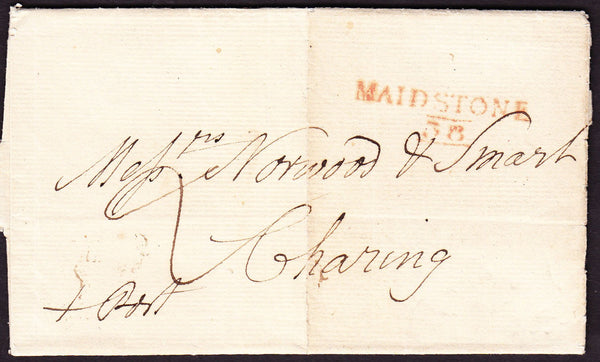 MAIDSTONE
38
Messrs Norwood & Smart
Charing
Post